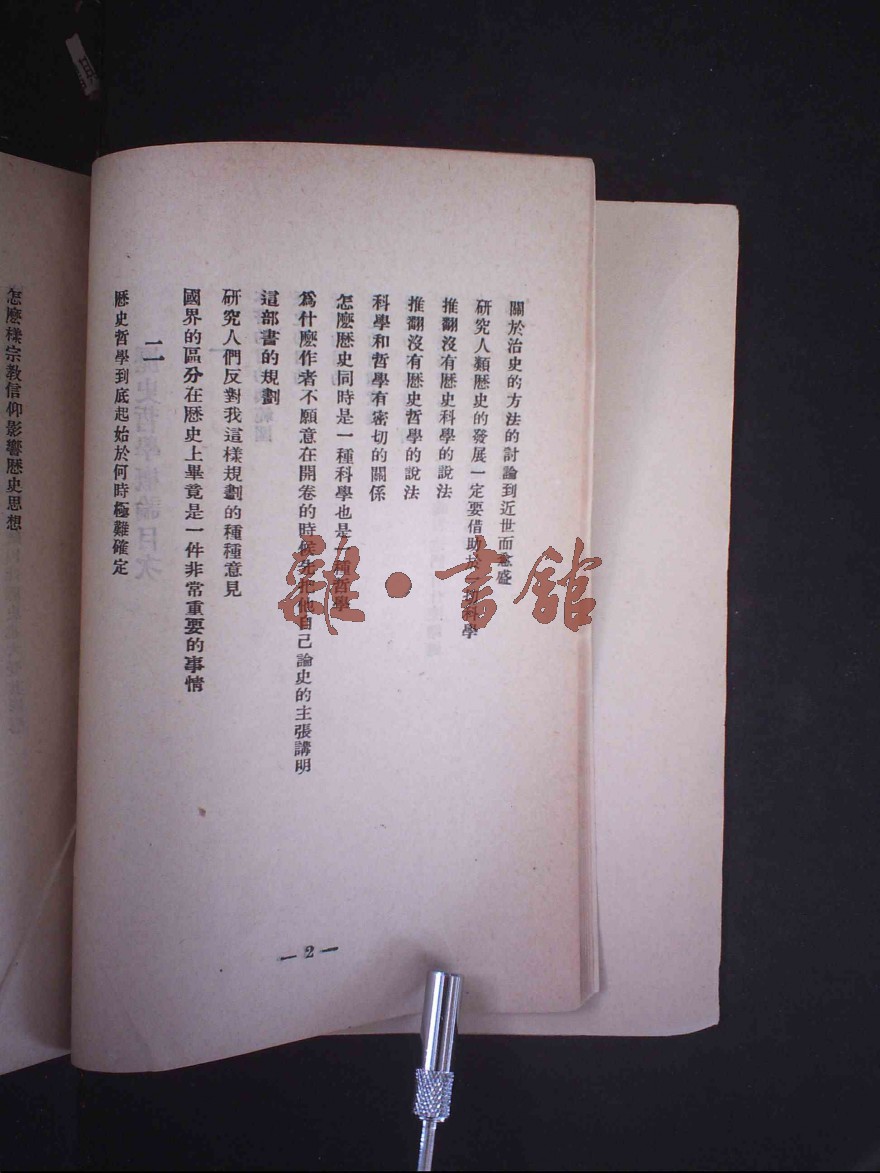 關於治史的方法的討論到近世而愈盛
研究人類歷史的發展一定要借助於一種科學
推翻沒有歷史科學的說法
推翻沒有歷史哲學的說法
科學和哲學有密切的關係
怎麼歷史同時是一種科學也是一種哲學
爲什麼作者不願意在開卷的時候先把他自己論史的主張講明
這部書的規劃
研究人們反對我這樣規劃的種種意見
國界的區分在歷史上畢竟是一件非常重要的事情
二
歷史哲學到底起始於何時極難確定
— 2 —
怎麼樣宗教信仰影響歷史思想
雜·書館